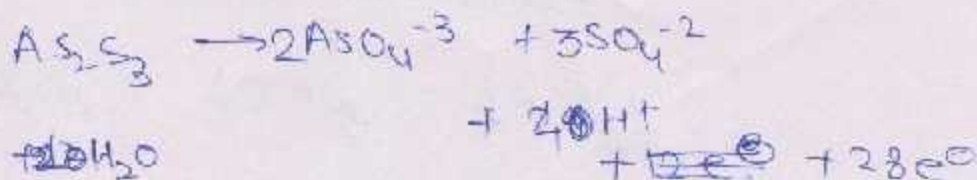 As₂S₃ → 2AsO₄⁻³ + 3SO₄⁻²
+ H⁺
+20H₂O + 28e⊖